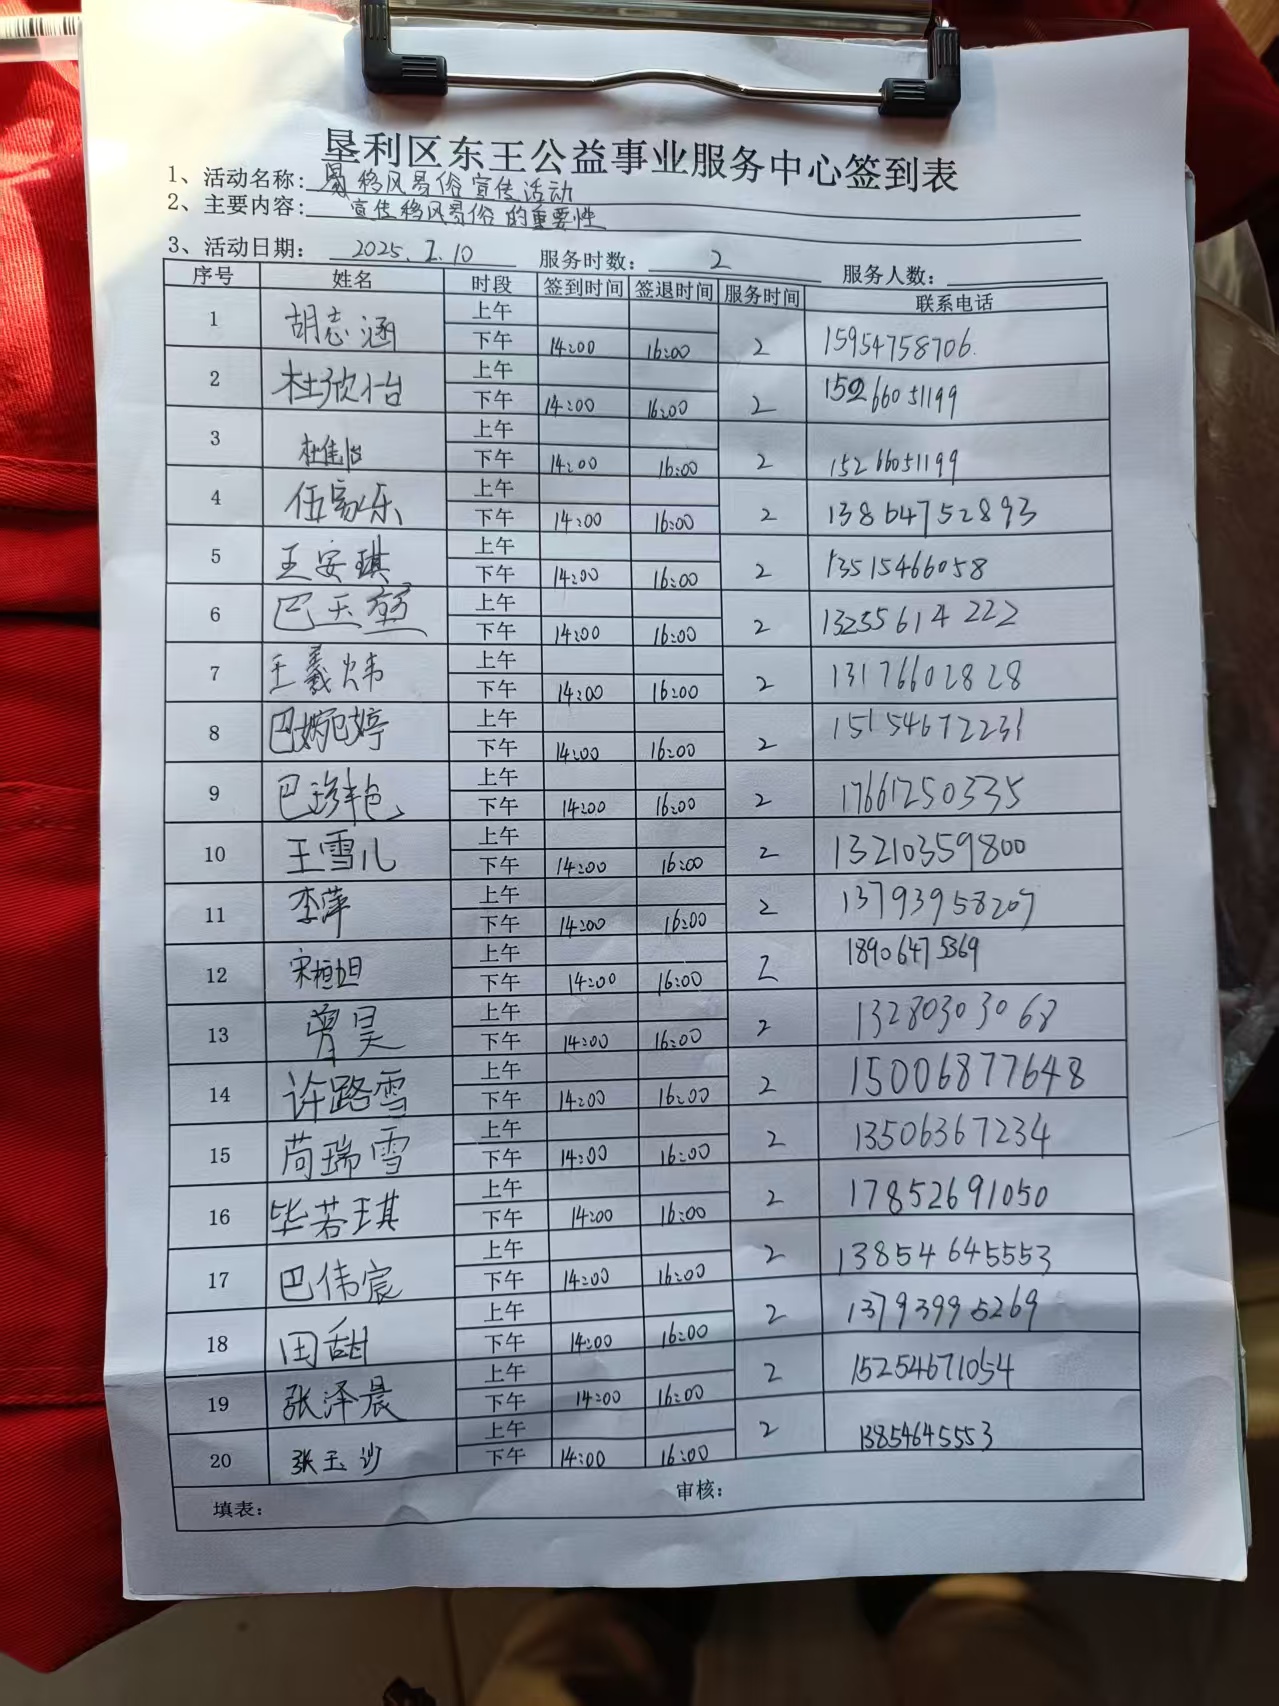 垦利区东王公益事业服务中心签到表
1、活动名称: 移风易俗宣传活动
2、主要内容: 宣传移风易俗的重要性
3、活动日期: 2025.1.10 服务时数: 2 服务人数:
序号 姓名 时段 签到时间 签退时间 服务时间 联系电话
1 胡志涵 上午
下午 14:00 16:00 2 15954758706.
2 杜欣怡 上午
下午 14:00 16:00 2 15266051199
3 杜佳怡 上午
下午 14:00 16:00 2 15266051199
4 伍家乐 上午
下午 14:00 16:00 2 13864752893
5 王安琪 上午
下午 14:00 16:00 2 13515466058
6 巴天 上午
下午 14:00 16:00 2 13255614222
7 王羲炜 上午
下午 14:00 16:00 2 13176602828
8 巴婉婷 上午
下午 14:00 16:00 2 15154672231
9 巴 上午
下午 14:00 16:00 2 17661250335
10 王雪儿 上午
下午 14:00 16:00 2 13210359800
11 李萍 上午
下午 14:00 16:00 2 13793958207
12 宋 上午
下午 14:00 16:00 2 18906475369
13 曾昊 上午
下午 14:00 16:00 2 13280303068
14 许路雪 上午
下午 14:00 16:00 2 15006877648
15 苘瑞雪 上午
下午 14:00 16:00 2 13506367234
16 毕若琪 上午
下午 14:00 16:00 2 17852691050
17 巴伟宸 上午
下午 14:00 16:00 2 13854645553
18 田甜 上午
下午 14:00 16:00 2 13793995269
19 张泽晨 上午
下午 14:00 16:00 2 15254671054
20 张玉沙 上午
下午 14:00 16:00 2 13854645553
填表: 审核: